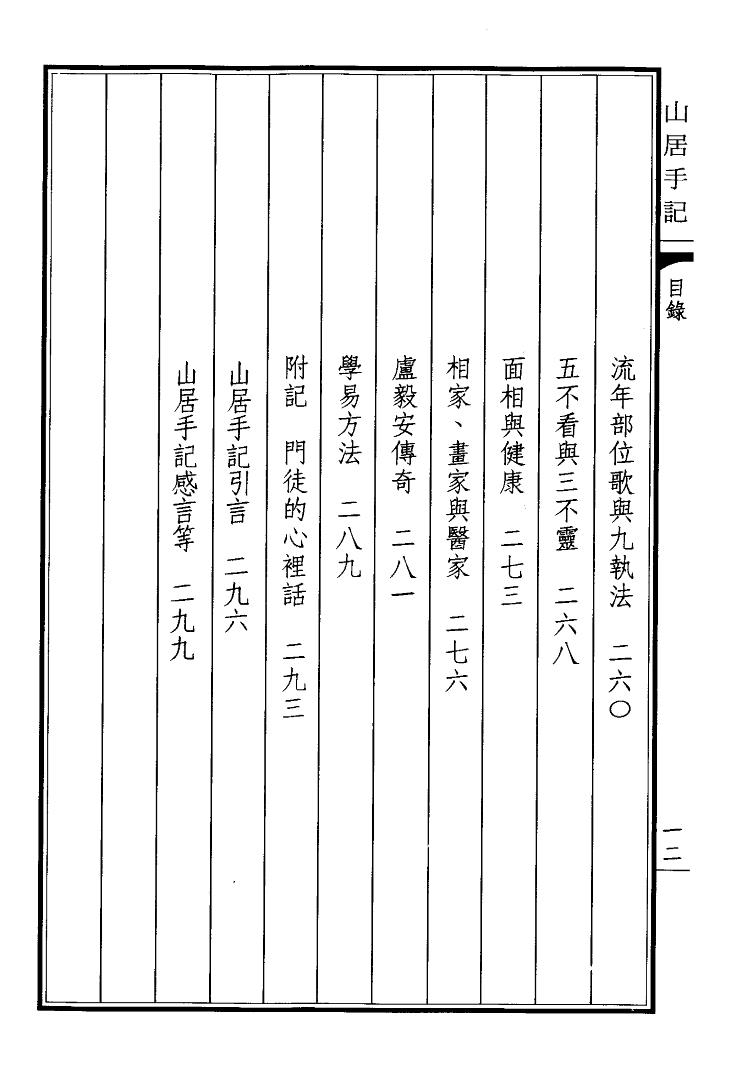 山居手記
目錄
流年部位歌與九執法　二六〇
五不看與三不靈　二六八
面相與健康　二七三
相家、畫家與醫家　二七六
盧毅安傳奇　二八一
學易方法　二八九
附記　門徒的心裡話　二九三
山居手記引言　二九六
山居手記感言等　二九九
一二